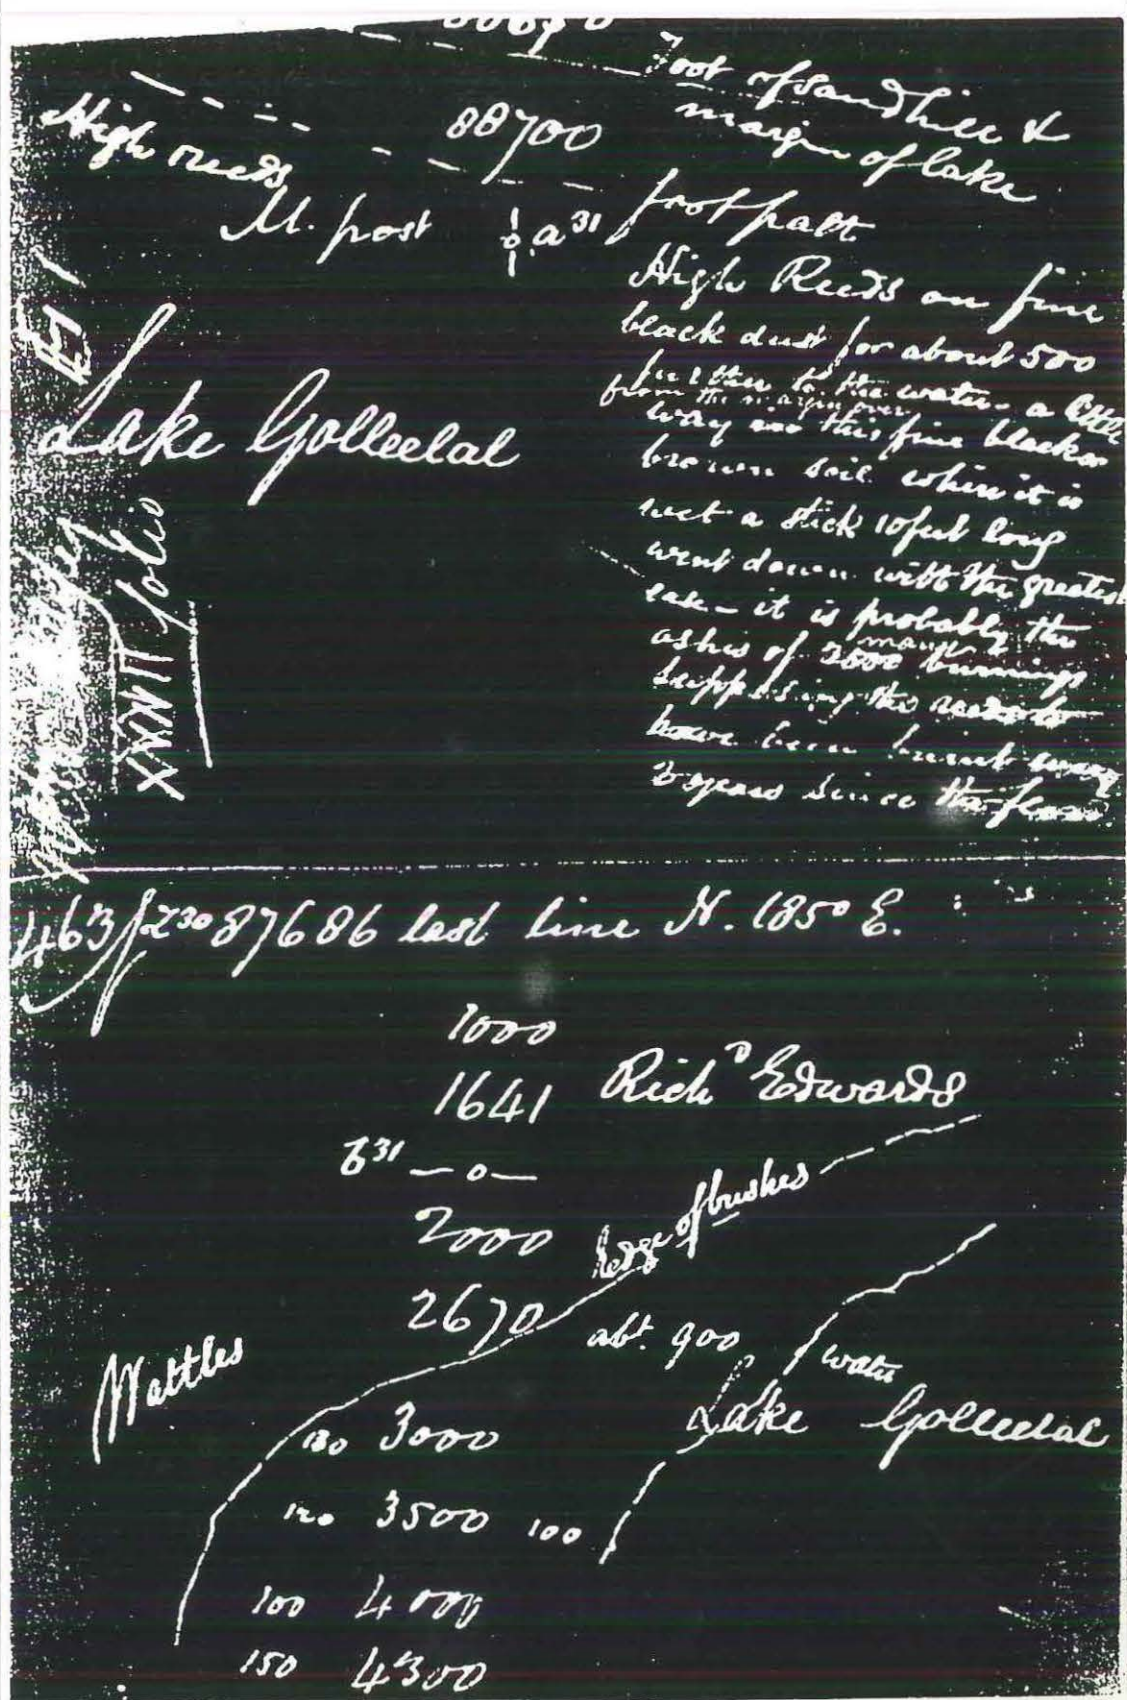 Foot of sandhill &
margin of lake
88700
High reeds
footpath
M. post a³¹
High Reeds on fine
black dust for about 500
further to the water - a little
from the margin over
way into this fine black or
brown soil when it is
wet a stick 10 feet long
went down with the greatest
ease - it is probably the
ashes of 2500 many burnings
supposing the reeds to
have been burnt every
3 years since the flood.
Lake Golleelal
XXVII folio
463 f 230 87686 last line N. 1850 E.
1000
1641 Rich^D Edwards
b³¹ —o—
2000 Edge of bushes
2670 abt. 900 water
Wattles
Lake Golleelal
180 3000
120 3500 100
100 4000
150 4300